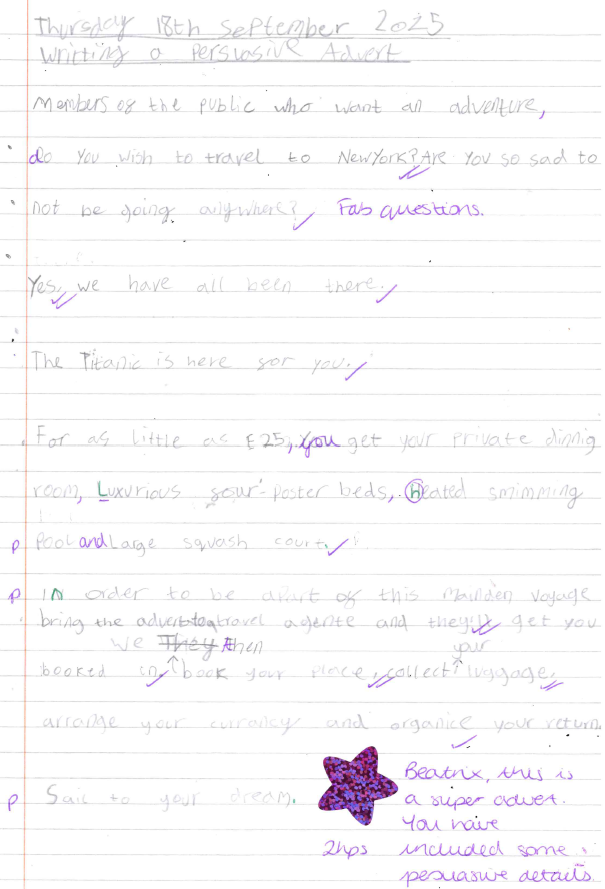 Thursday 18th September 2025
Writting a Persuasive Advert
Members of the public who want an adventure,
do you wish to travel to New York? Are you so sad to
not be going anywhere? Fab questions.
Yes, we have all been there.
The Titanic is here for you.
For as little as £25, you get your private dinnig
room, Luxurious four-poster beds, heated smimming
p pool and Large squash court.
p In order to be apart of this Mainden voyage
bring the advert to a travel agente and they'll get you
we They then your
booked in, book your place, collect luggage,
arrange your currancy and organice your return.
p Sail to your dream.
Beatrix, this is
a super advert.
You have
2hps included some
persuasive details